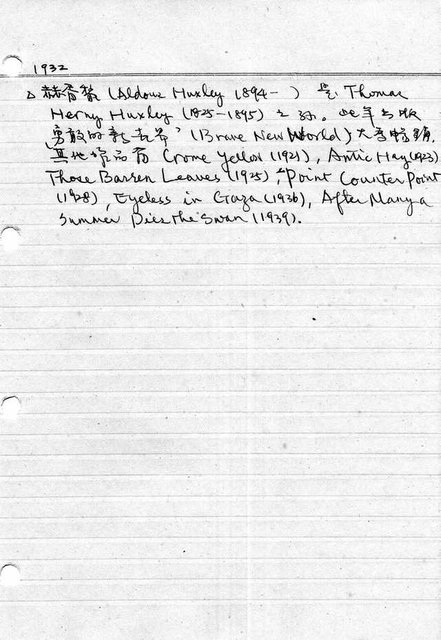 1932
△ 赫胥黎 (Aldous Huxley 1894- ) 是 Thomas
Herny Huxley (1825-1895) 之孫。此年出版
勇敢的新世界 (Brave New World) 大为暢銷,
其他作品有 Crome Yellow (1921), Antic Hay (1923)
Those Barren Leaves (1925), Point Counter Point
(1928), Eyeless in Gaza (1936), After Many a
Summer Dies the Swan (1939).